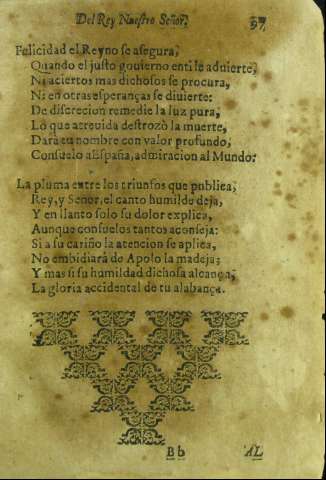 Del Rey Nuestro Señor.
97
Felicidad el Reyno se asegura,
Quando el justo gouierno enti se aduierte,
Ni aciertos mas dichosos se procura,
Ni en otras esperanças se diuierte:
De discrecion remedie la luz pura,
Lo que atreuida destrozò la muerte,
Darà tu nombre con valor profundo,
Consuelo a España, admiracion al Mundo.
La pluma entre los triunfos que publica,
Rey, y Señor, el canto humilde deja,
Y en llanto solo su dolor explica,
Aunque consuelos tantos aconseja:
Si a su cariño la atencion se aplica,
No embidiarà de Apolo la madeja;
Y mas si su humildad dichosa alcança,
La gloria accidental de tu alabança.
Bb
AL